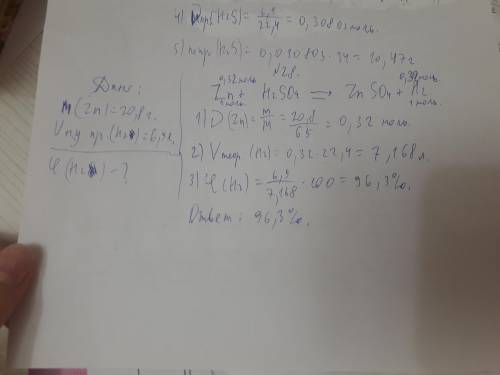 4) νпр(H2S) = 6,9/22,4 = 0,30803 моль.
5) mпр(H2S) = 0,030803 · 34 = 10,47 г
N28.
Дано:
m(Zn) = 20,8 г.
Vпр(H2) = 6,9 л.
φ(H2) - ?
0,32 моль 0,32 моль
Zn + H2SO4 = ZnSO4 + H2
1 моль 1 моль.
1) ν(Zn) = m/M = 20,8/65 = 0,32 моль.
2) Vтеор(H2) = 0,32 · 22,4 = 7,168 л.
3) φ(H2) = 6,9/7,168 · 100 = 96,3%.
Ответ: 96,3%.